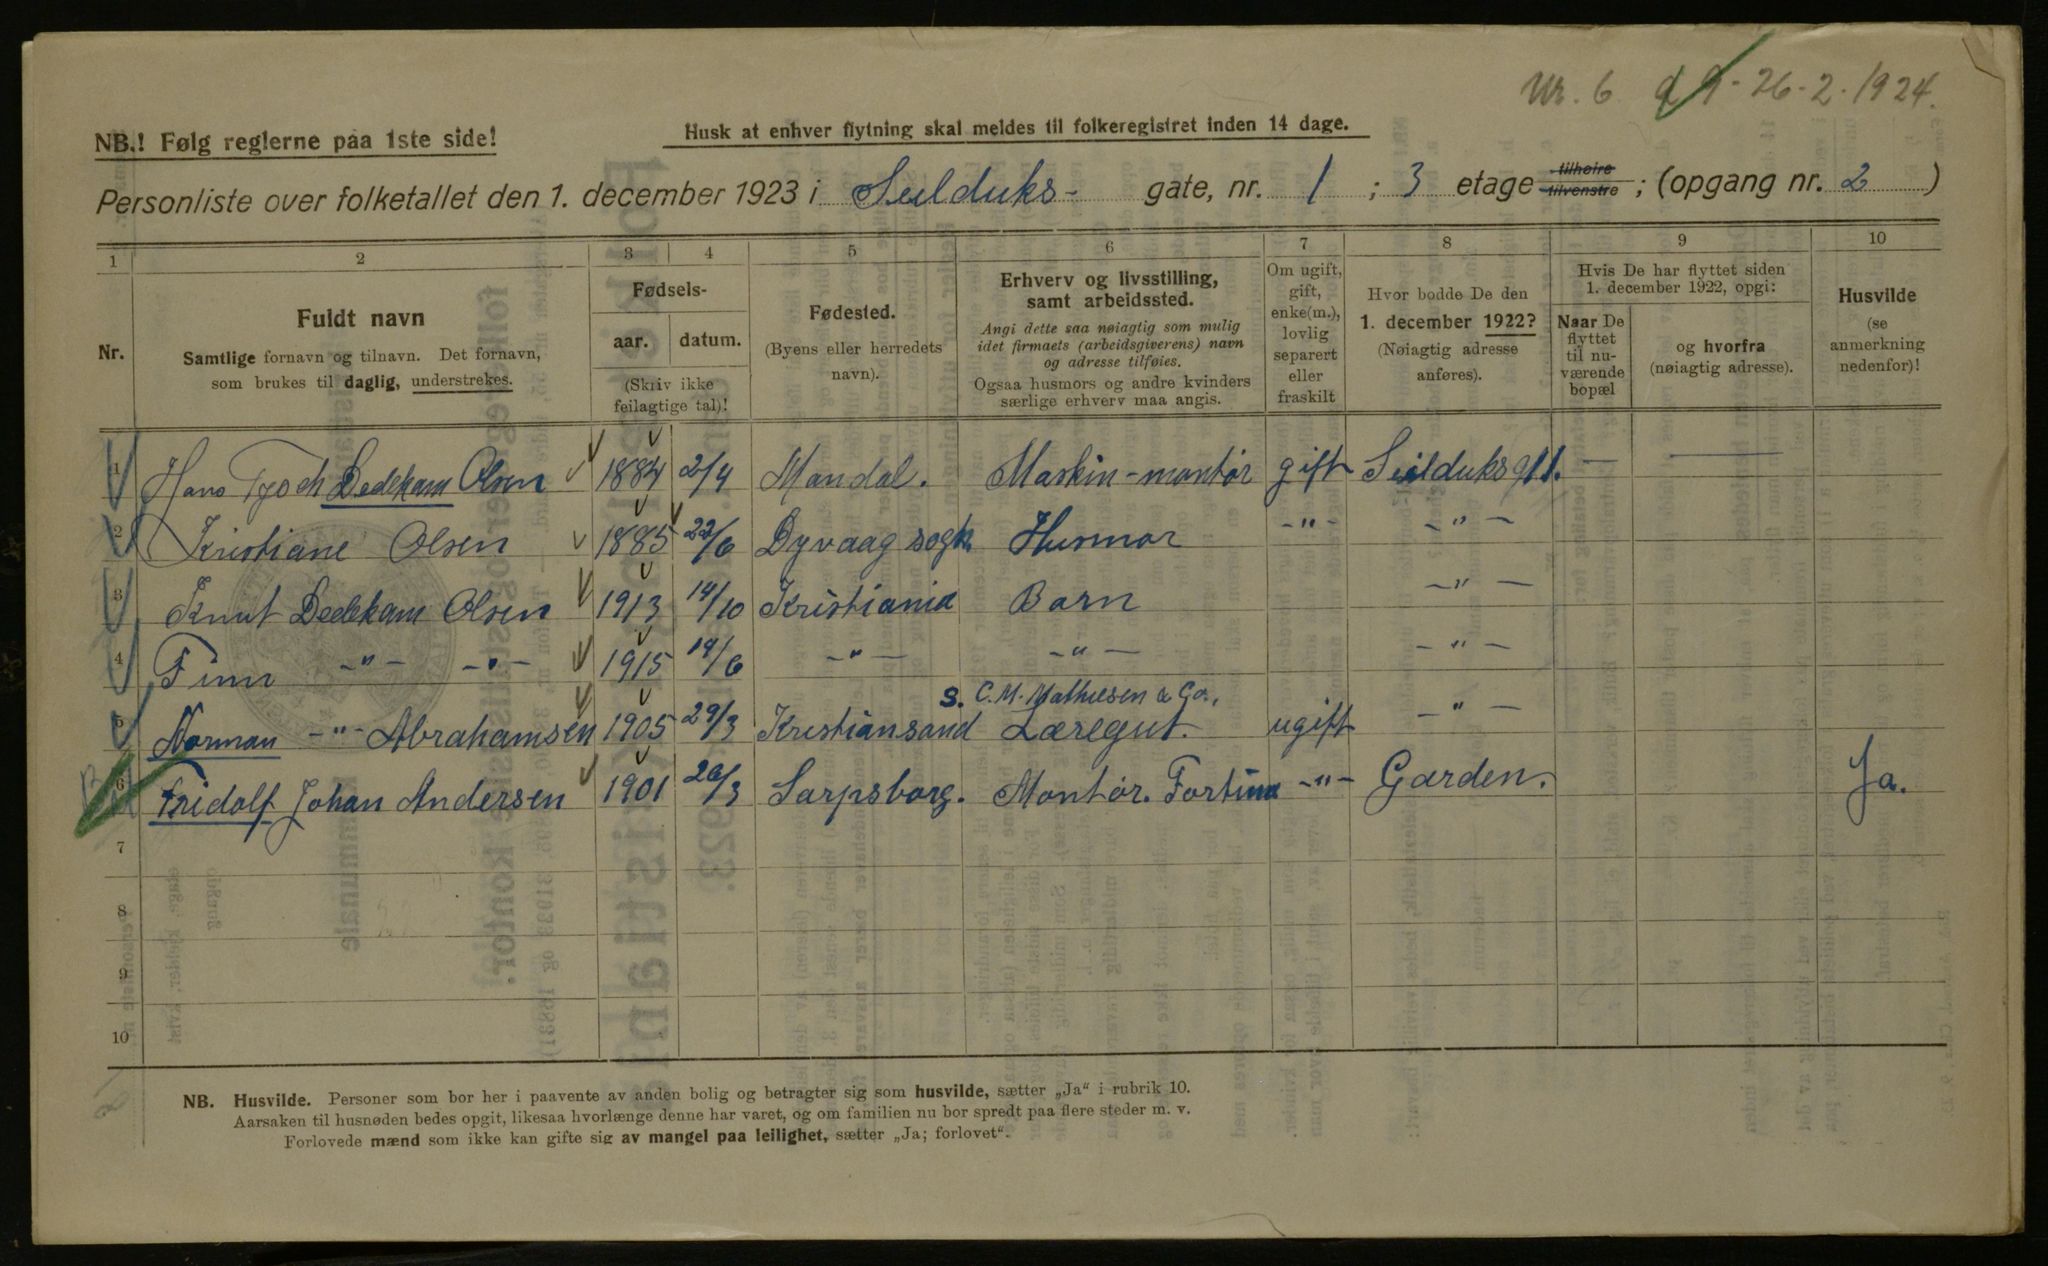 Nr. 6 - 26-2-1924.
NB.! Følg reglerne paa 1ste side!
Husk at enhver flytning skal meldes til folkeregistret inden 14 dage.
Personliste over folketallet den 1. december 1923 i Seilduks- gate, nr. 1 ; 3 etage tilhøire tilvenstre ; (opgang nr. 2 )
1 2 3 4 5 6 7 8 9 10
Nr.
Fuldt navn
Samtlige fornavn og tilnavn. Det fornavn,
som brukes til daglig, understrekes.
Fødsels-
aar. datum.
(Skriv ikke
feilagtige tal)!
Fødested.
(Byens eller herredets
navn).
Erhverv og livsstilling,
samt arbeidssted.
Angi dette saa nøiagtig som mulig
idet firmaets (arbeidsgiverens) navn
og adresse tilføies.
Ogsaa husmors og andre kvinders
særlige erhverv maa angis.
Om ugift,
gift,
enke(m.),
lovlig
separert
eller
fraskilt
Hvor bodde De den
1. december 1922?
(Nøiagtig adresse
anføres).
Hvis De har flyttet siden
1. december 1922, opgi:
Naar De
flyttet
til nu-
værende
bopæl
og hvorfra
(nøiagtig adresse).
Husvilde
(se
anmerkning
nedenfor)!
1 Hans Dedekam Olsen 1884 2/4 Mandal. Maskin-montør gift Seilduksgt 1. — —
2 Kristiane Olsen 1885 22/6 Dyvaag sogn Husmor -"- -"-
3 Knut Dedekam Olsen 1913 14/10 Kristiania Barn -"-
4 Finn -"- -"- 1915 19/6 -"- -"- -"-
S. C. M. Mathiesen & Co.,
5 Norman -"- Abrahamsen 1905 29/3 Kristiansand Læregut. ugift -"-
6 Fridolf Johan Andersen 1901 26/3 Sarpsborg. Montør. Fortuna -"- Garden. Ja.
7
8
9
10
NB. Husvilde. Personer som bor her i paavente av anden bolig og betragter sig som husvilde, sætter „Ja" i rubrik 10.
Aarsaken til husnøden bedes opgit, likesaa hvorlænge denne har varet, og om familien nu bor spredt paa flere steder m. v.
Forlovede mænd som ikke kan gifte sig av mangel paa leilighet, sætter „Ja; forlovet".